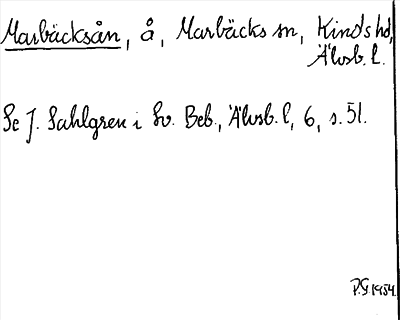 Marbäcksån, å, Marbäcks sn, Kinds hd,
Älvsb. l.
Se J. Sahlgren i Sv. Beb., Älvsb. l, 6, s. 51.
P.G. 1954.